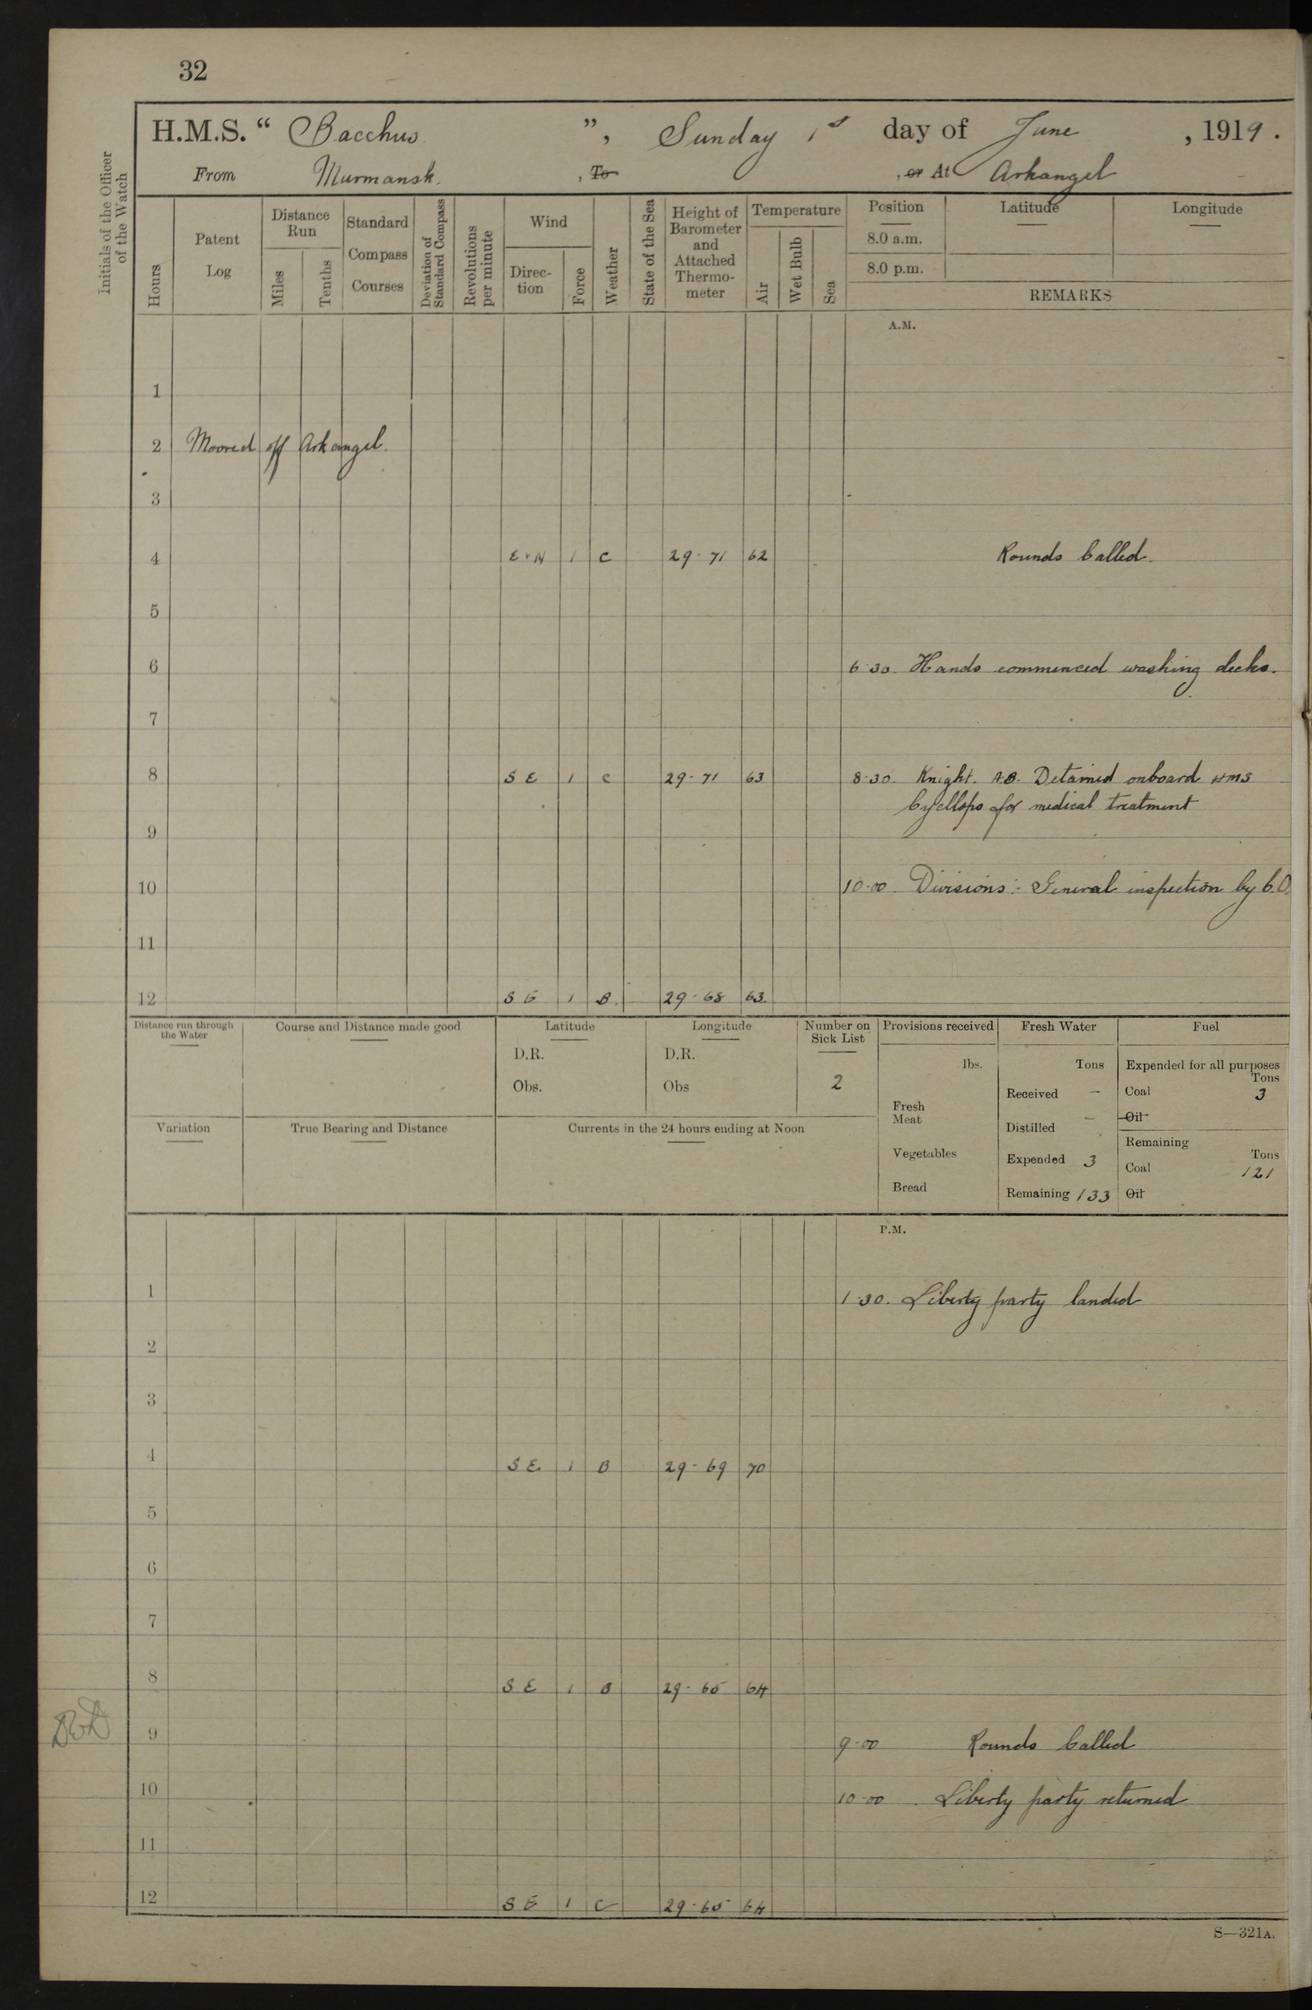 32
H.M.S. “ Bacchus ”, Sunday 1st day of June , 1919 .
From Murmansk. , To , or At Arkangel
Initials of the Officer of the Watch
Hours
Patent Log
Distance Run
Miles
Tenths
Standard Compass Courses
Deviation of Standard Compass
Revolutions per minute
Wind
Direction
Force
Weather
State of the Sea
Height of Barometer and Attached Thermometer
Temperature
Air
Wet Bulb
Sea
Position Latitude Longitude
8.0 a.m.
8.0 p.m.
REMARKS
A.M.
1
2 Moored off Arkangel.
3
4 E & N 1 C 29·71 62 Rounds Called.
5
6 6·30. Hands commenced washing decks.
7
8 S E 1 C 29·71 63 8·30. Knight. A.B. Detained onboard HMS
Cycllops for medical treatment
9
10 10·00 Divisions:- General inspection by C.O.
11
12 S E 1 B. 29·68 63.
Distance run through the Water
Course and Distance made good
Latitude
D.R.
Obs.
Longitude
D.R.
Obs
Number on Sick List
2
Provisions received
lbs.
Fresh Meat
Vegetables
Bread
Fresh Water
Tons
Received –
Distilled –
Expended 3
Remaining 133
Fuel
Expended for all purposes
Tons
Coal 3
Oil
Remaining
Tons
Coal 121
Oil
Variation
True Bearing and Distance
Currents in the 24 hours ending at Noon
P.M.
1 1·30. Liberty party landed
2
3
4 S E. 1 B 29·69 70
5
6
7
8 S E 1 B 29·65 64
9 9·00 Rounds Called
10 10·00 . Liberty party returned
11
12 S E 1 C 29·65 64
S—321A.